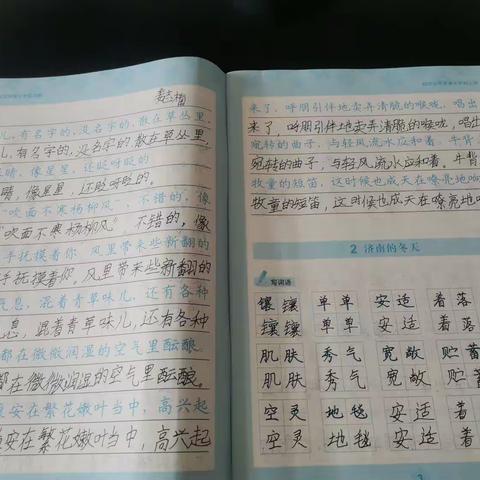 儿，有名字的，没名字的，散在草丛里，
儿，有名字的，没名字的，散在草丛里，
睛，像星星，还眨呀眨的。
睛，像星星，还眨呀眨的。
“吹面不寒杨柳风”，不错的，像
“吹面不寒杨柳风”，不错的，像
手抚摸着你。风里带来些新翻的
手抚摸着你。风里带来些新翻的
气息，混着青草味儿，还有各种
息，混着青草味儿，还有各种
都在微微润湿的空气里酝酿。
都在微微润湿的空气里酝酿。
安在繁花嫩叶当中，高兴起
安在繁花嫩叶当中，高兴起
来了，呼朋引伴地卖弄清脆的喉咙，唱出
来了，呼朋引伴地卖弄清脆的喉咙，唱出
宛转的曲子，与轻风流水应和着。牛背
宛转的曲子，与轻风流水应和着。牛背
牧童的短笛，这时候也成天在嘹亮地响
牧童的短笛，这时候也成天在嘹亮地
2 济南的冬天
写词语
镶 镶 单 单 安 适 着 落
镶 镶 单 单 安 适 着 落
肌 肤 秀 气 宽 敞 贮 蓄
肌 肤 秀 气 宽 敞 贮
空 灵 地 毯 安 适 着
空 灵 地 毯 安 适 着